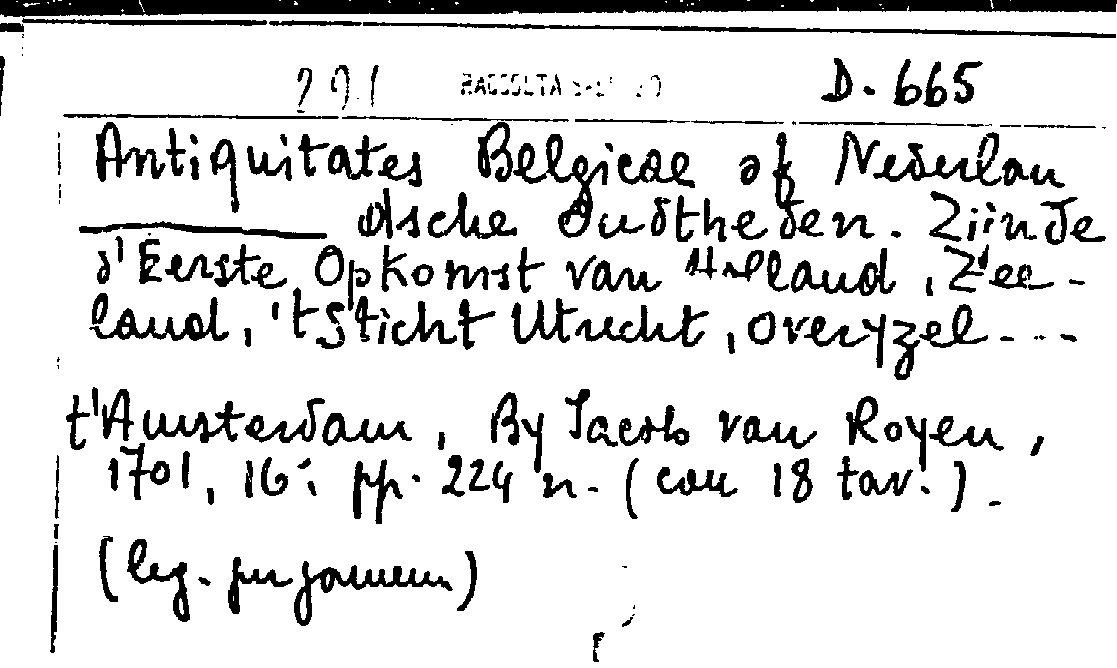 291 RACCOLTA D. 665
Antiquitates Belgicae of Nederlan
dsche Oudtheden. Ziinde
d'Eerste Opkomst van Holland, Zee-
land, 'tSticht Utrecht, overyzel ---
t'Amsterdam, By Jacob van Royen,
1701, 16: pp. 224 n. (con 18 tav.).
(leg. pergamen.)